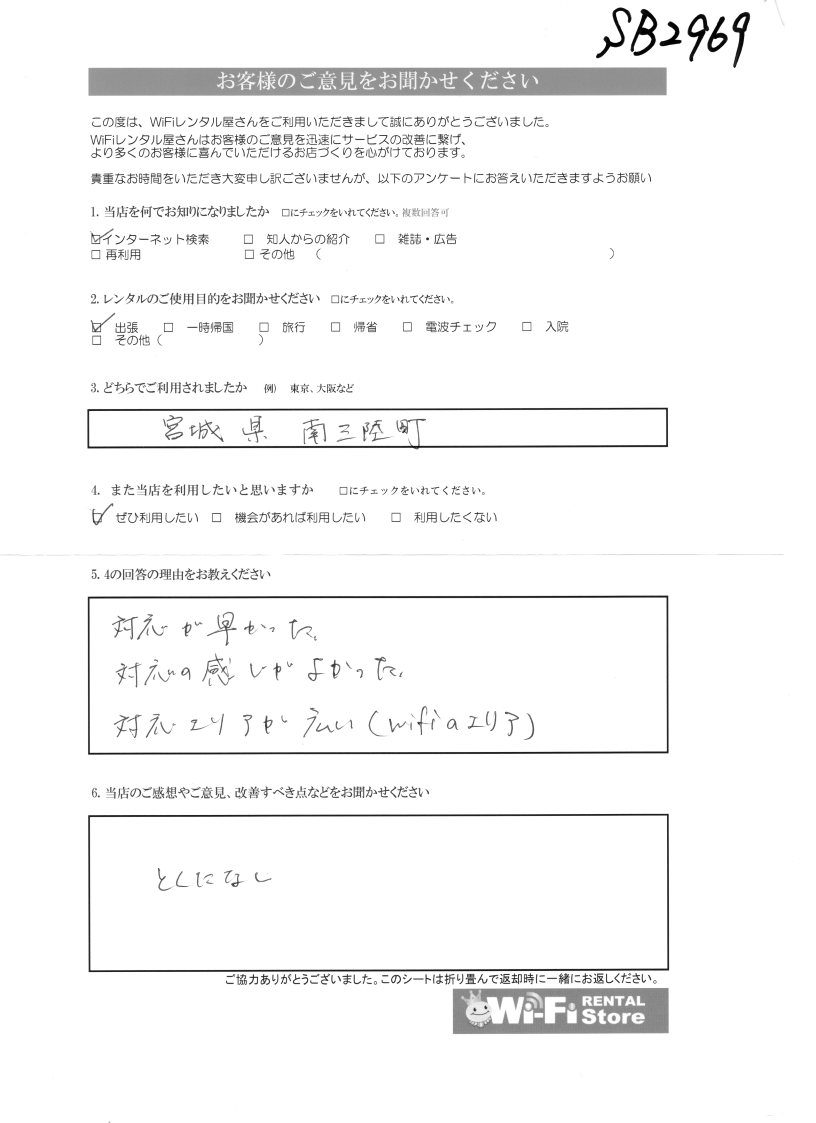 SB2969
お客様のご意見をお聞かせください
この度は、WiFiレンタル屋さんをご利用いただきまして誠にありがとうございました。
WiFiレンタル屋さんはお客様のご意見を迅速にサービスの改善に繋げ、
より多くのお客様に喜んでいただけるお店づくりを心がけております。
貴重なお時間をいただき大変申し訳ございませんが、以下のアンケートにお答えいただきますようお願い
1. 当店を何でお知りになりましたか □にチェックをいれてください。複数回答可
☑インターネット検索 □ 知人からの紹介 □ 雑誌・広告
□ 再利用 □ その他 ( )
2. レンタルのご使用目的をお聞かせください □にチェックをいれてください。
☑ 出張 □ 一時帰国 □ 旅行 □ 帰省 □ 電波チェック □ 入院
□ その他 ( )
3. どちらでご利用されましたか 例) 東京、大阪など
宮城県 南三陸町
4. また当店を利用したいと思いますか □にチェックをいれてください。
☑ ぜひ利用したい □ 機会があれば利用したい □ 利用したくない
5. 4の回答の理由をお教えください
対応が早かった。
対応の感じがよかった。
対応エリアが広い(wifiのエリア)
6. 当店のご感想やご意見、改善すべき点などをお聞かせください
とくになし
ご協力ありがとうございました。このシートは折り畳んで返却時に一緒にお返しください。
Wi-Fi RENTAL Store